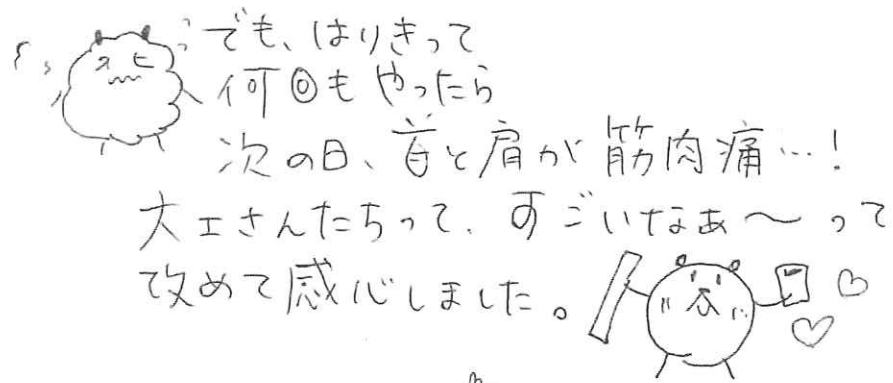 でも、はりきって
何回もやったら
次の日、首と肩が筋肉痛…!
大工さんたちって、すごいなぁ〜って
改めて感心しました。